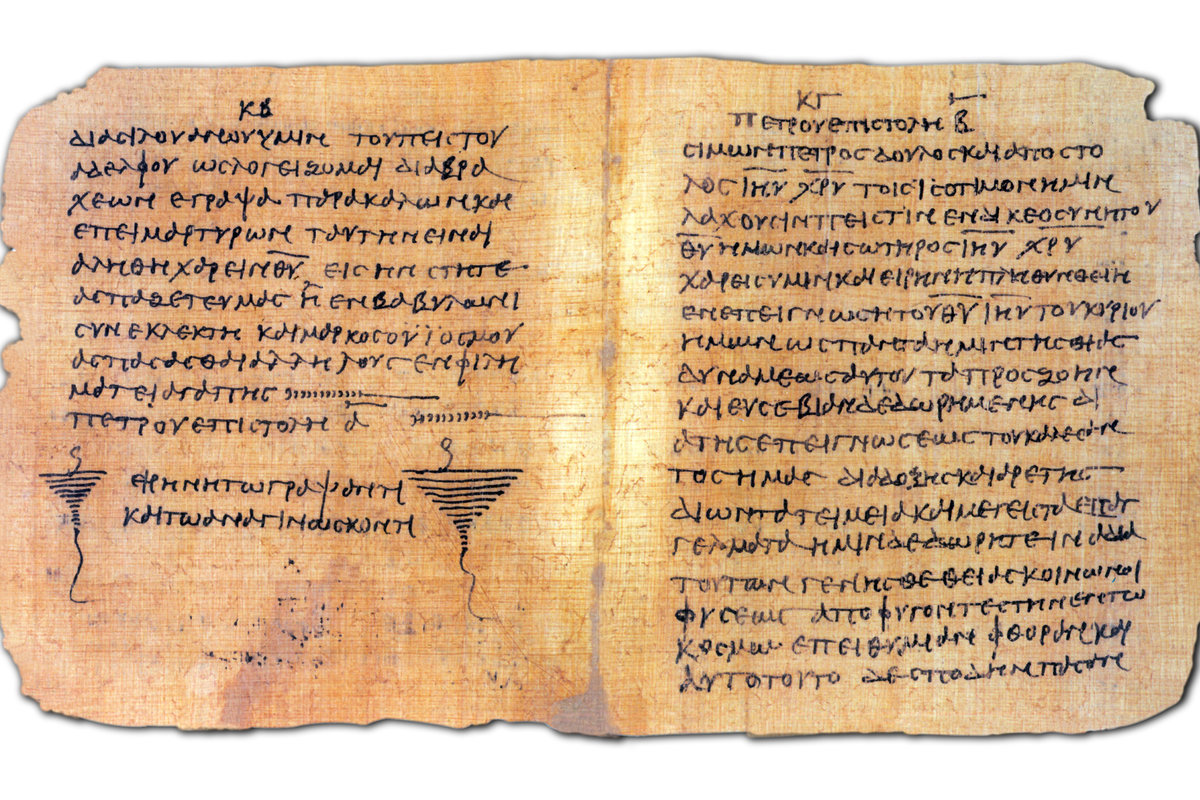 ΚΒ
ΔΙΑ ϹΙΛΟΥΑΝΟΥ ΥΜΙΝ ΤΟΥ ΠΕΙϹΤΟΥ
ΑΔΕΛΦΟΥ ΩϹ ΛΟΓΕΙΖΟΜΑΙ ΔΙΑ ΒΡΑ
ΧΕΩΝ ΕΓΡΑΨΑ ΠΑΡΑΚΑΛΩΝ ΚΑΙ
ΕΠΕΙΜΑΡΤΥΡΩΝ ΤΑΥΤΗΝ ΕΙΝΑΙ
ΑΛΗΘΗ ΧΑΡΕΙΝ Θ̅Υ̅ ΕΙϹ ΗΝ ϹΤΗΤΕ
ΑϹΠΑΖΕΤΕ ΥΜΑϹ Η ΕΝ ΒΑΒΥΛΩΝΙ
ϹΥΝΕΚΛΕΚΤΗ ΚΑΙ ΜΑΡΚΟϹ Ο ΥΙΟϹ ΜΟΥ
ΑϹΠΑϹΑϹΘΑΙ ΑΛΛΗΛΟΥϹ ΕΝ ΦΙΛΗ
ΜΑΤΕΙ ΑΓΑΠΗϹ
ΠΕΤΡΟΥ ΕΠΙϹΤΟΛΗ Α̅
ΕΙΡΗΝΗ ΤΩ ΓΡΑΨΑΝΤΙ
ΚΑΙ ΤΩ ΑΝΑΓΙΝΩϹΚΟΝΤΙ
ΚΓ
ΠΕΤΡΟΥ ΕΠΙϹΤΟΛΗ Β̅
ϹΙΜΩΝ ΠΕΤΡΟϹ ΔΟΥΛΟϹ ΚΑΙ ΑΠΟϹΤΟ
ΛΟϹ Ι̅Η̅Υ̅ Χ̅Ρ̅Υ̅ ΤΟΙϹ ΙϹΟΤΙΜΟΝ ΗΜΙΝ
ΛΑΧΟΥϹΙΝ ΠΕΙϹΤΙΝ ΕΝ ΔΙΚΕΟϹΥΝΗ ΤΟΥ
Θ̅Υ̅ ΗΜΩΝ ΚΑΙ ϹΩΤΗΡΟϹ Ι̅Η̅Υ̅ Χ̅Ρ̅Υ̅
ΧΑΡΕΙϹ ΥΜΙΝ ΚΑΙ ΕΙΡΗΝΗ ΠΛΗΘΥΝΘΕΙΗ
ΕΝ ΕΠΕΙΓΝΩϹΗ ΤΟΥ Θ̅Υ̅ Ι̅Η̅Υ̅ ΤΟΥ ΚΥΡΙΟΥ
ΗΜΩΝ ΩϹ ΠΑΝΤΑ ΗΜΙΝ ΤΗϹ ΘΙΑϹ
ΔΥΝΑΜΕΩϹ ΑΥΤΟΥ ΤΑ ΠΡΟϹ ΖΟΗΝ
ΚΑΙ ΕΥϹΕΒΙΑΝ ΔΕΔΩΡΗΜΕΝΗϹ ΔΙ
Α ΤΗϹ ΕΠΕΙΓΝΩϹΕΩϹ ΤΟΥ ΚΑΛΕϹΑΝ
ΤΟϹ ΗΜΑϹ ΔΙΑ ΔΟΞΗϹ ΚΑΙ ΑΡΕΤΗϹ
ΔΙ ΩΝ ΤΑ ΤΕΙΜΕΙΑ ΚΑΙ ΜΕΓΕΙϹΤΑ ΕΠΑΓ
ΓΕΛΜΑΤΑ ΗΜΙΝ ΔΕΔΩΡΗΤΕ ΙΝΑ ΔΙΑ
ΤΟΥΤΩΝ ΓΕΝΗϹΘΕ ΘΕΙΑϹ ΚΟΙΝΩΝΟΙ
ΦΥϹΕΩϹ ΑΠΟΦΥΓΟΝΤΕϹ ΤΗΝ ΕΝ ΤΩ
ΚΟϹΜΩ ΕΠΕΙΘΥΜΙΑΝ ΦΘΟΡΑΝ ΚΑΙ
ΑΥΤΟ ΤΟΥΤΟ ΔΕ ϹΠΟΔΗΝ ΠΑϹΑΝ